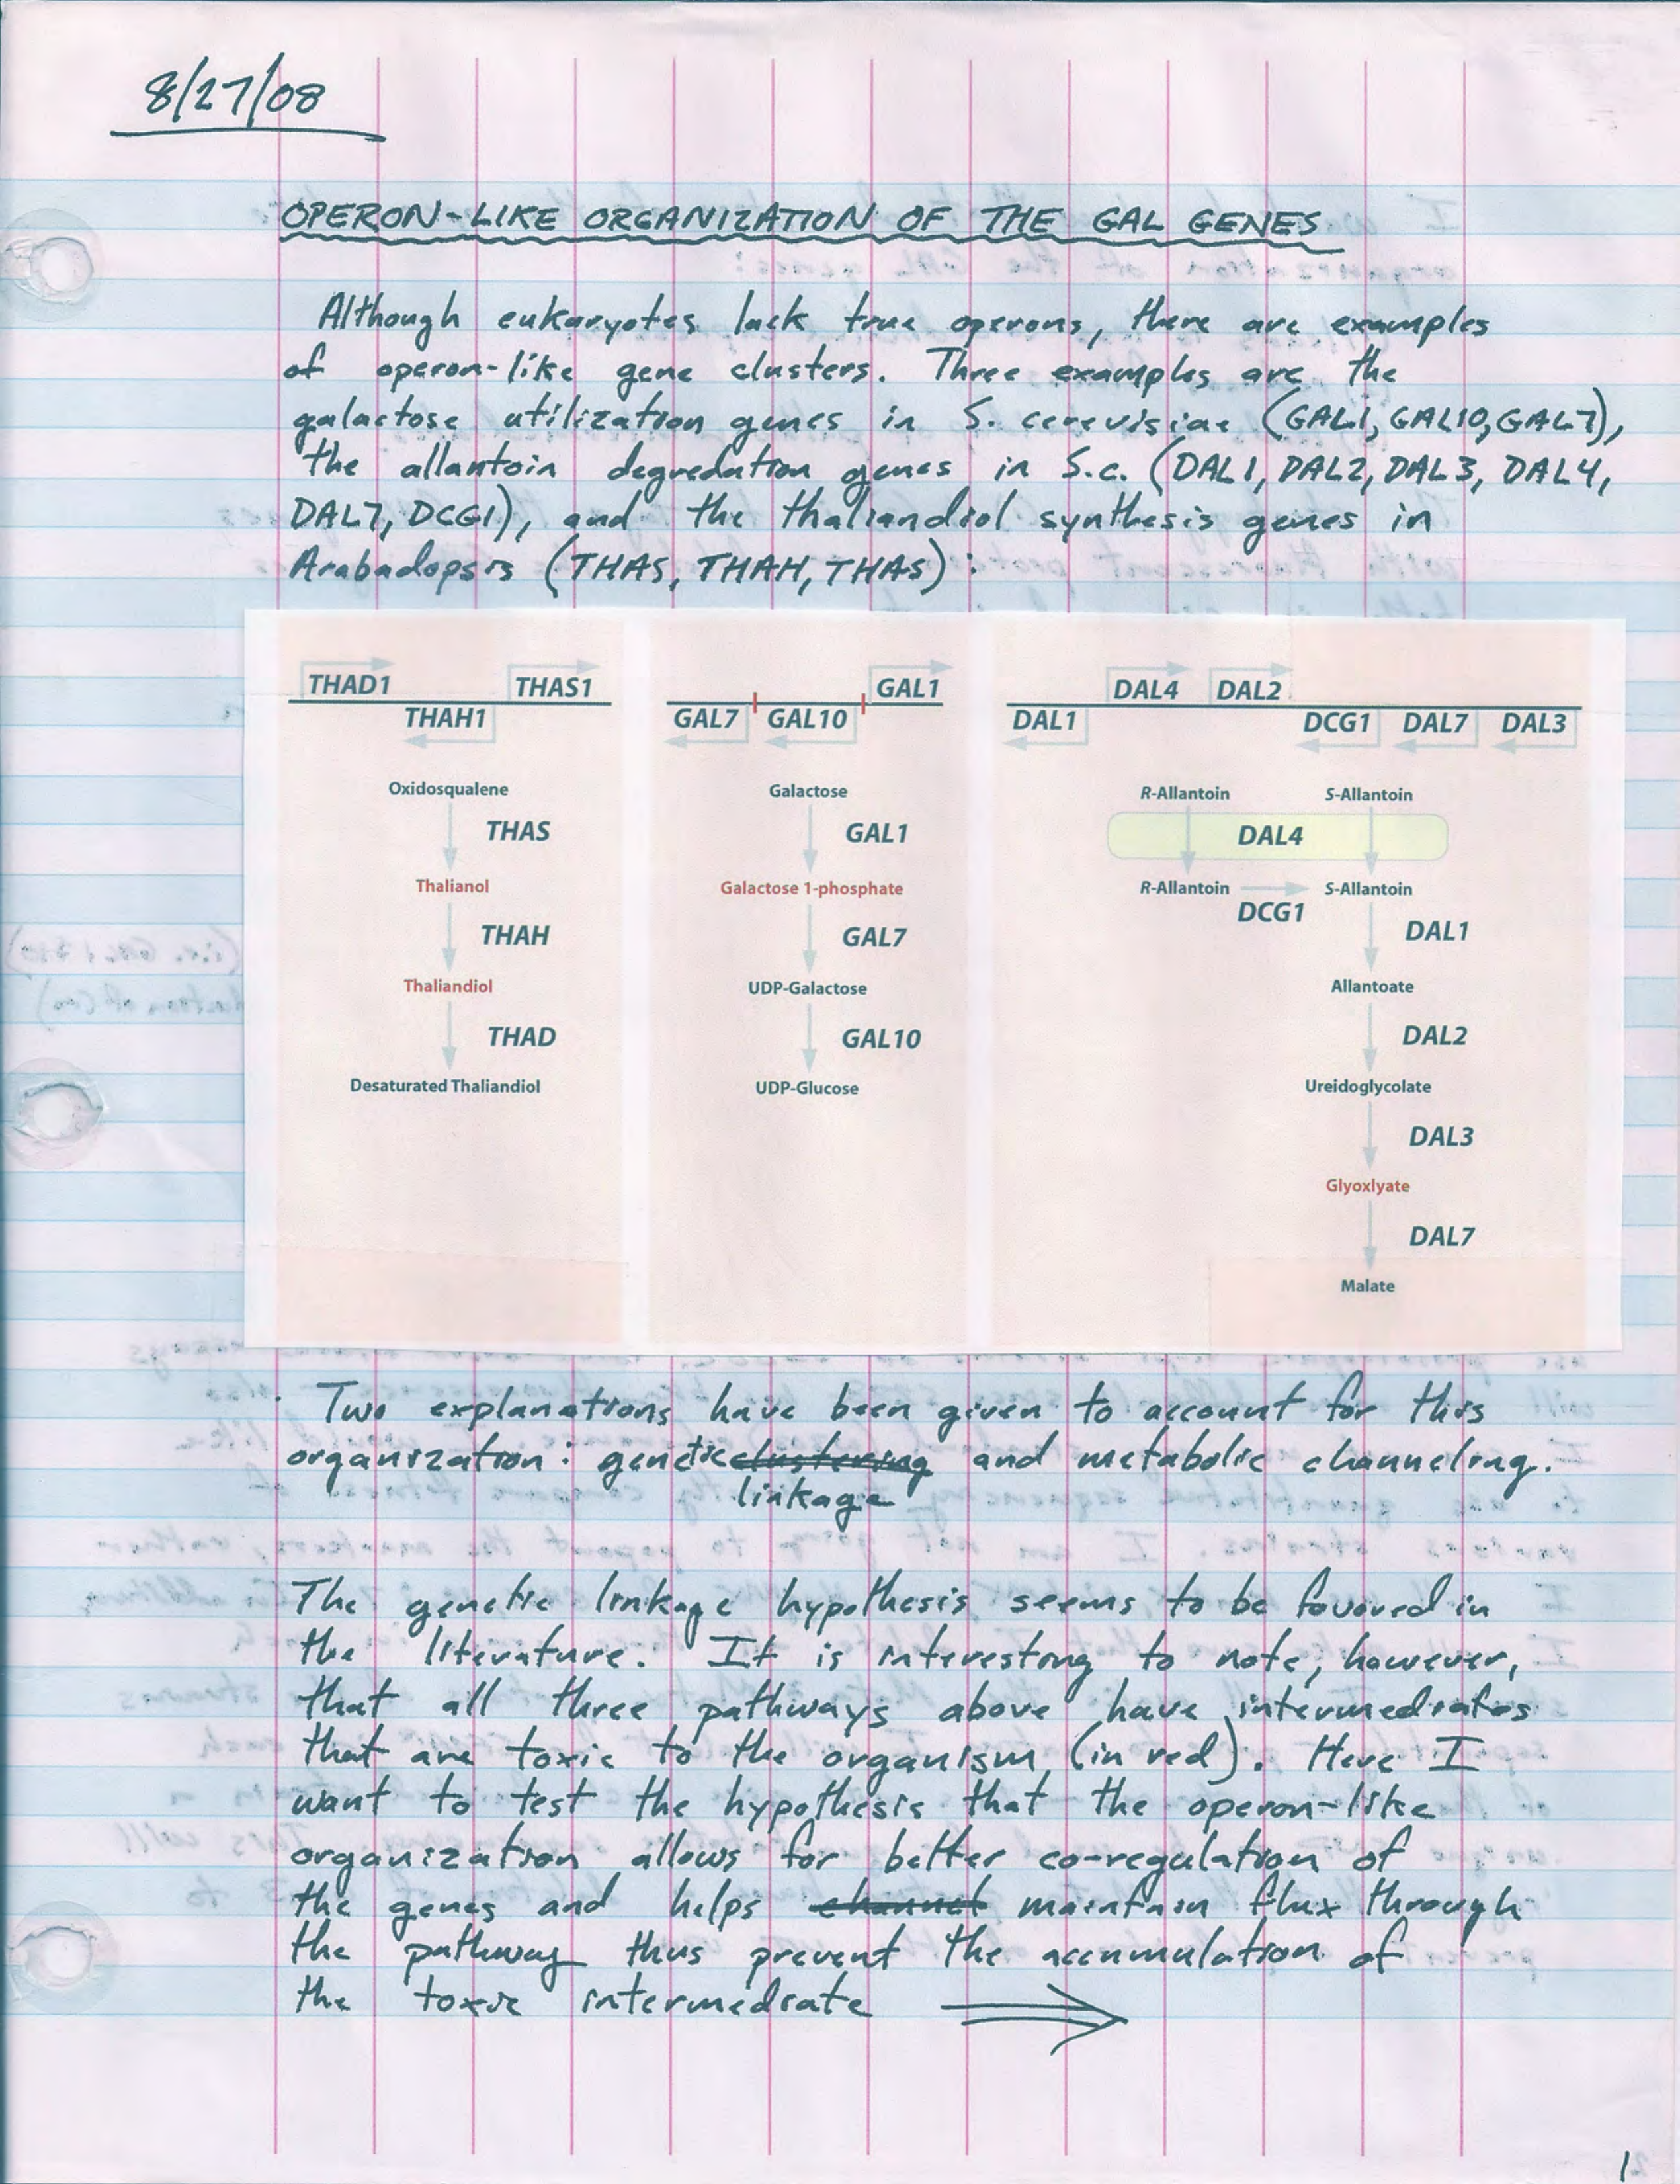 8/27/08
OPERON-LIKE ORGANIZATION OF THE GAL GENES
Although eukaryotes lack true operons, there are examples
of operon-like gene clusters. Three examples are the
galactose utilization genes in S. cerevisiae (GAL1, GAL10, GAL7),
the allantoin degredation genes in S.c. (DAL1, DAL2, DAL3, DAL4,
DAL7, DCG1), and the thaliandiol synthesis genes in
Arabadopsis (THAS, THAH, THAS):
THAD1 THAS1
THAH1
Oxidosqualene
THAS
Thalianol
THAH
Thaliandiol
THAD
Desaturated Thaliandiol
GAL1
GAL7 GAL10
Galactose
GAL1
Galactose 1-phosphate
GAL7
UDP-Galactose
GAL10
UDP-Glucose
DAL4 DAL2
DAL1 DCG1 DAL7 DAL3
R-Allantoin S-Allantoin
DAL4
R-Allantoin S-Allantoin
DCG1
DAL1
Allantoate
DAL2
Ureidoglycolate
DAL3
Glyoxlyate
DAL7
Malate
Two explanations have been given to account for this
organization: genetic clustering and metabolic channeling.
linkage
The genetic linkage hypothesis seems to be favored in
the literature. It is interesting to note, however,
that all three pathways above have intermediates
that are toxic to the organism (in red). Here I
want to test the hypothesis that the operon-like
organization allows for better co-regulation of
the genes and helps channel maintain flux through
the pathway thus prevent the accumulation of
the toxic intermediate
1